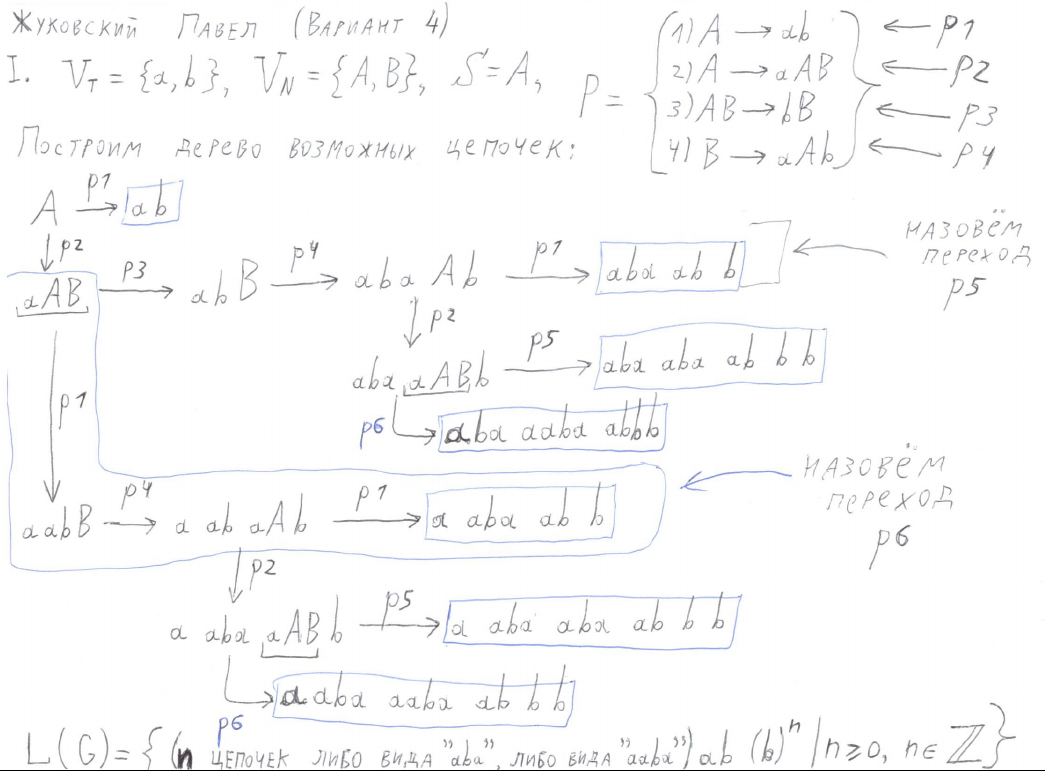 Жуковский Павел (Вариант 4)
I. V_T = {a, b}, V_N = {A, B}, S = A, P = { 1) A → ab ← p1
2) A → aAB ← p2
3) AB → bB ← p3
4) B → aAb ← p4 }
Построим дерево возможных цепочек:
A p1→ ab
↓ p2
aAB p3→ abB p4→ aba Ab p1→ aba ab b ← назовём переход p5
↓ p2
aba aABb p5→ aba aba ab b b
p6 → aba aaba abbb
↓ p1
aabB p4→ a ab aAb p1→ a aba ab b ← назовём переход p6
↓ p2
a aba aAB b p5→ a aba aba ab b b
p6 → a aba aaba ab b b
L(G) = { (n цепочек либо вида "aba", либо вида "aaba") ab (b)^n | n ≥ 0, n ∈ ℤ }